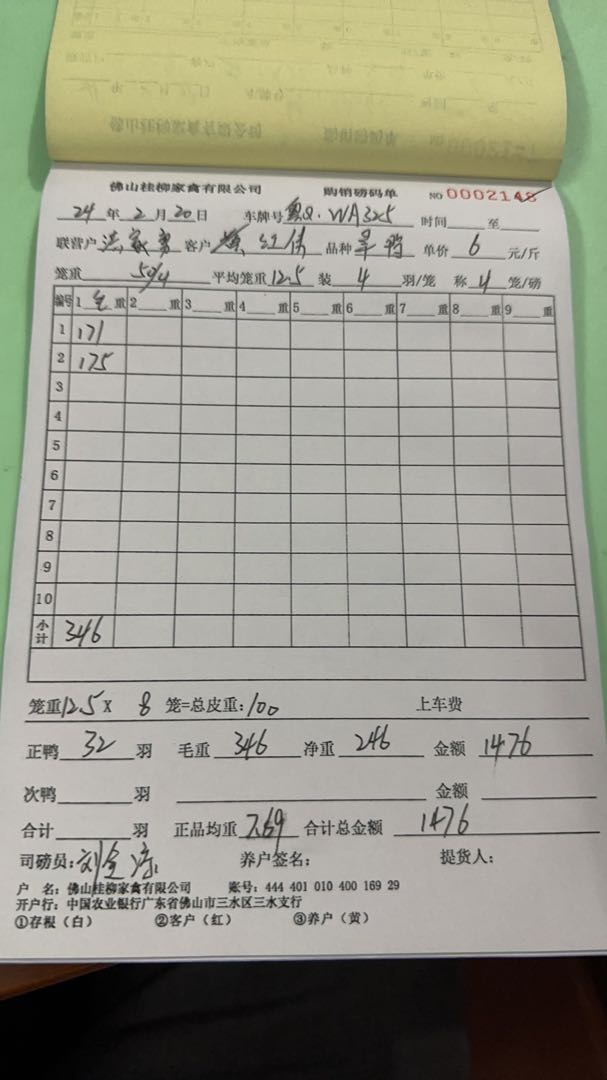 佛山桂柳家禽有限公司 购销磅码单 NO 0002148
24 年 2 月 20 日 车牌号 粤Q·WA325 时间 至
联营户 家 客户 红 品种 旱鸭 单价 6 元/斤
笼重 50/4 平均笼重 12.5 装 4 羽/笼 称 4 笼/磅
编号 1 毛 重 2 重 3 重 4 重 5 重 6 重 7 重 8 重 9 重
1 171
2 175
3
4
5
6
7
8
9
10
小计 346
笼重 12.5 X 8 笼=总皮重: 100 上车费
正鸭 32 羽 毛重 346 净重 246 金额 1476
次鸭 羽 金额
合计 羽 正品均重 7.69 合计总金额 1476
司磅员: 刘 养户签名: 提货人:
户 名: 佛山桂柳家禽有限公司 账号: 444 401 010 400 169 29
开户行: 中国农业银行广东省佛山市三水区三水支行
①存根(白) ②客户(红) ③养户(黄)